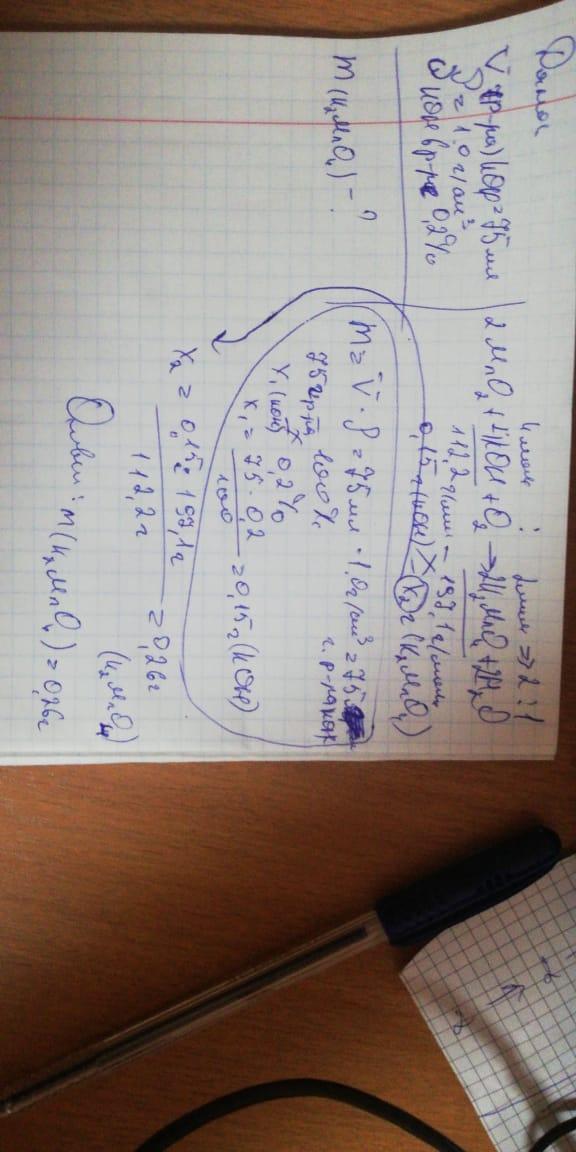 Дано:
V(р-ра) KOH = 75 мл
ρ = 1,0 г/см³
ω KOH в р-ре 0,2%
m(K₂MnO₄) - ?
4 моль : 2 моль ⇒ 2:1
2MnO₂ + 4KOH + O₂ → 2K₂MnO₄ + 2H₂O
112,2 г/моль - 197,1 г/моль
0,15 г (KOH) X₂ г (K₂MnO₄)
m = V · ρ = 75 мл · 1,0 г/см³ = 75
г. р-ра KOH
75 г р-ра 100%
X₁ (KOH) 0,2%
X₁ = 75 · 0,2 / 100 = 0,15 г (KOH)
X₂ = 0,15 г 197,1 г / 112,2 г = 0,26 г
(K₂MnO₄)
Ответ: m(K₂MnO₄) = 0,26 г